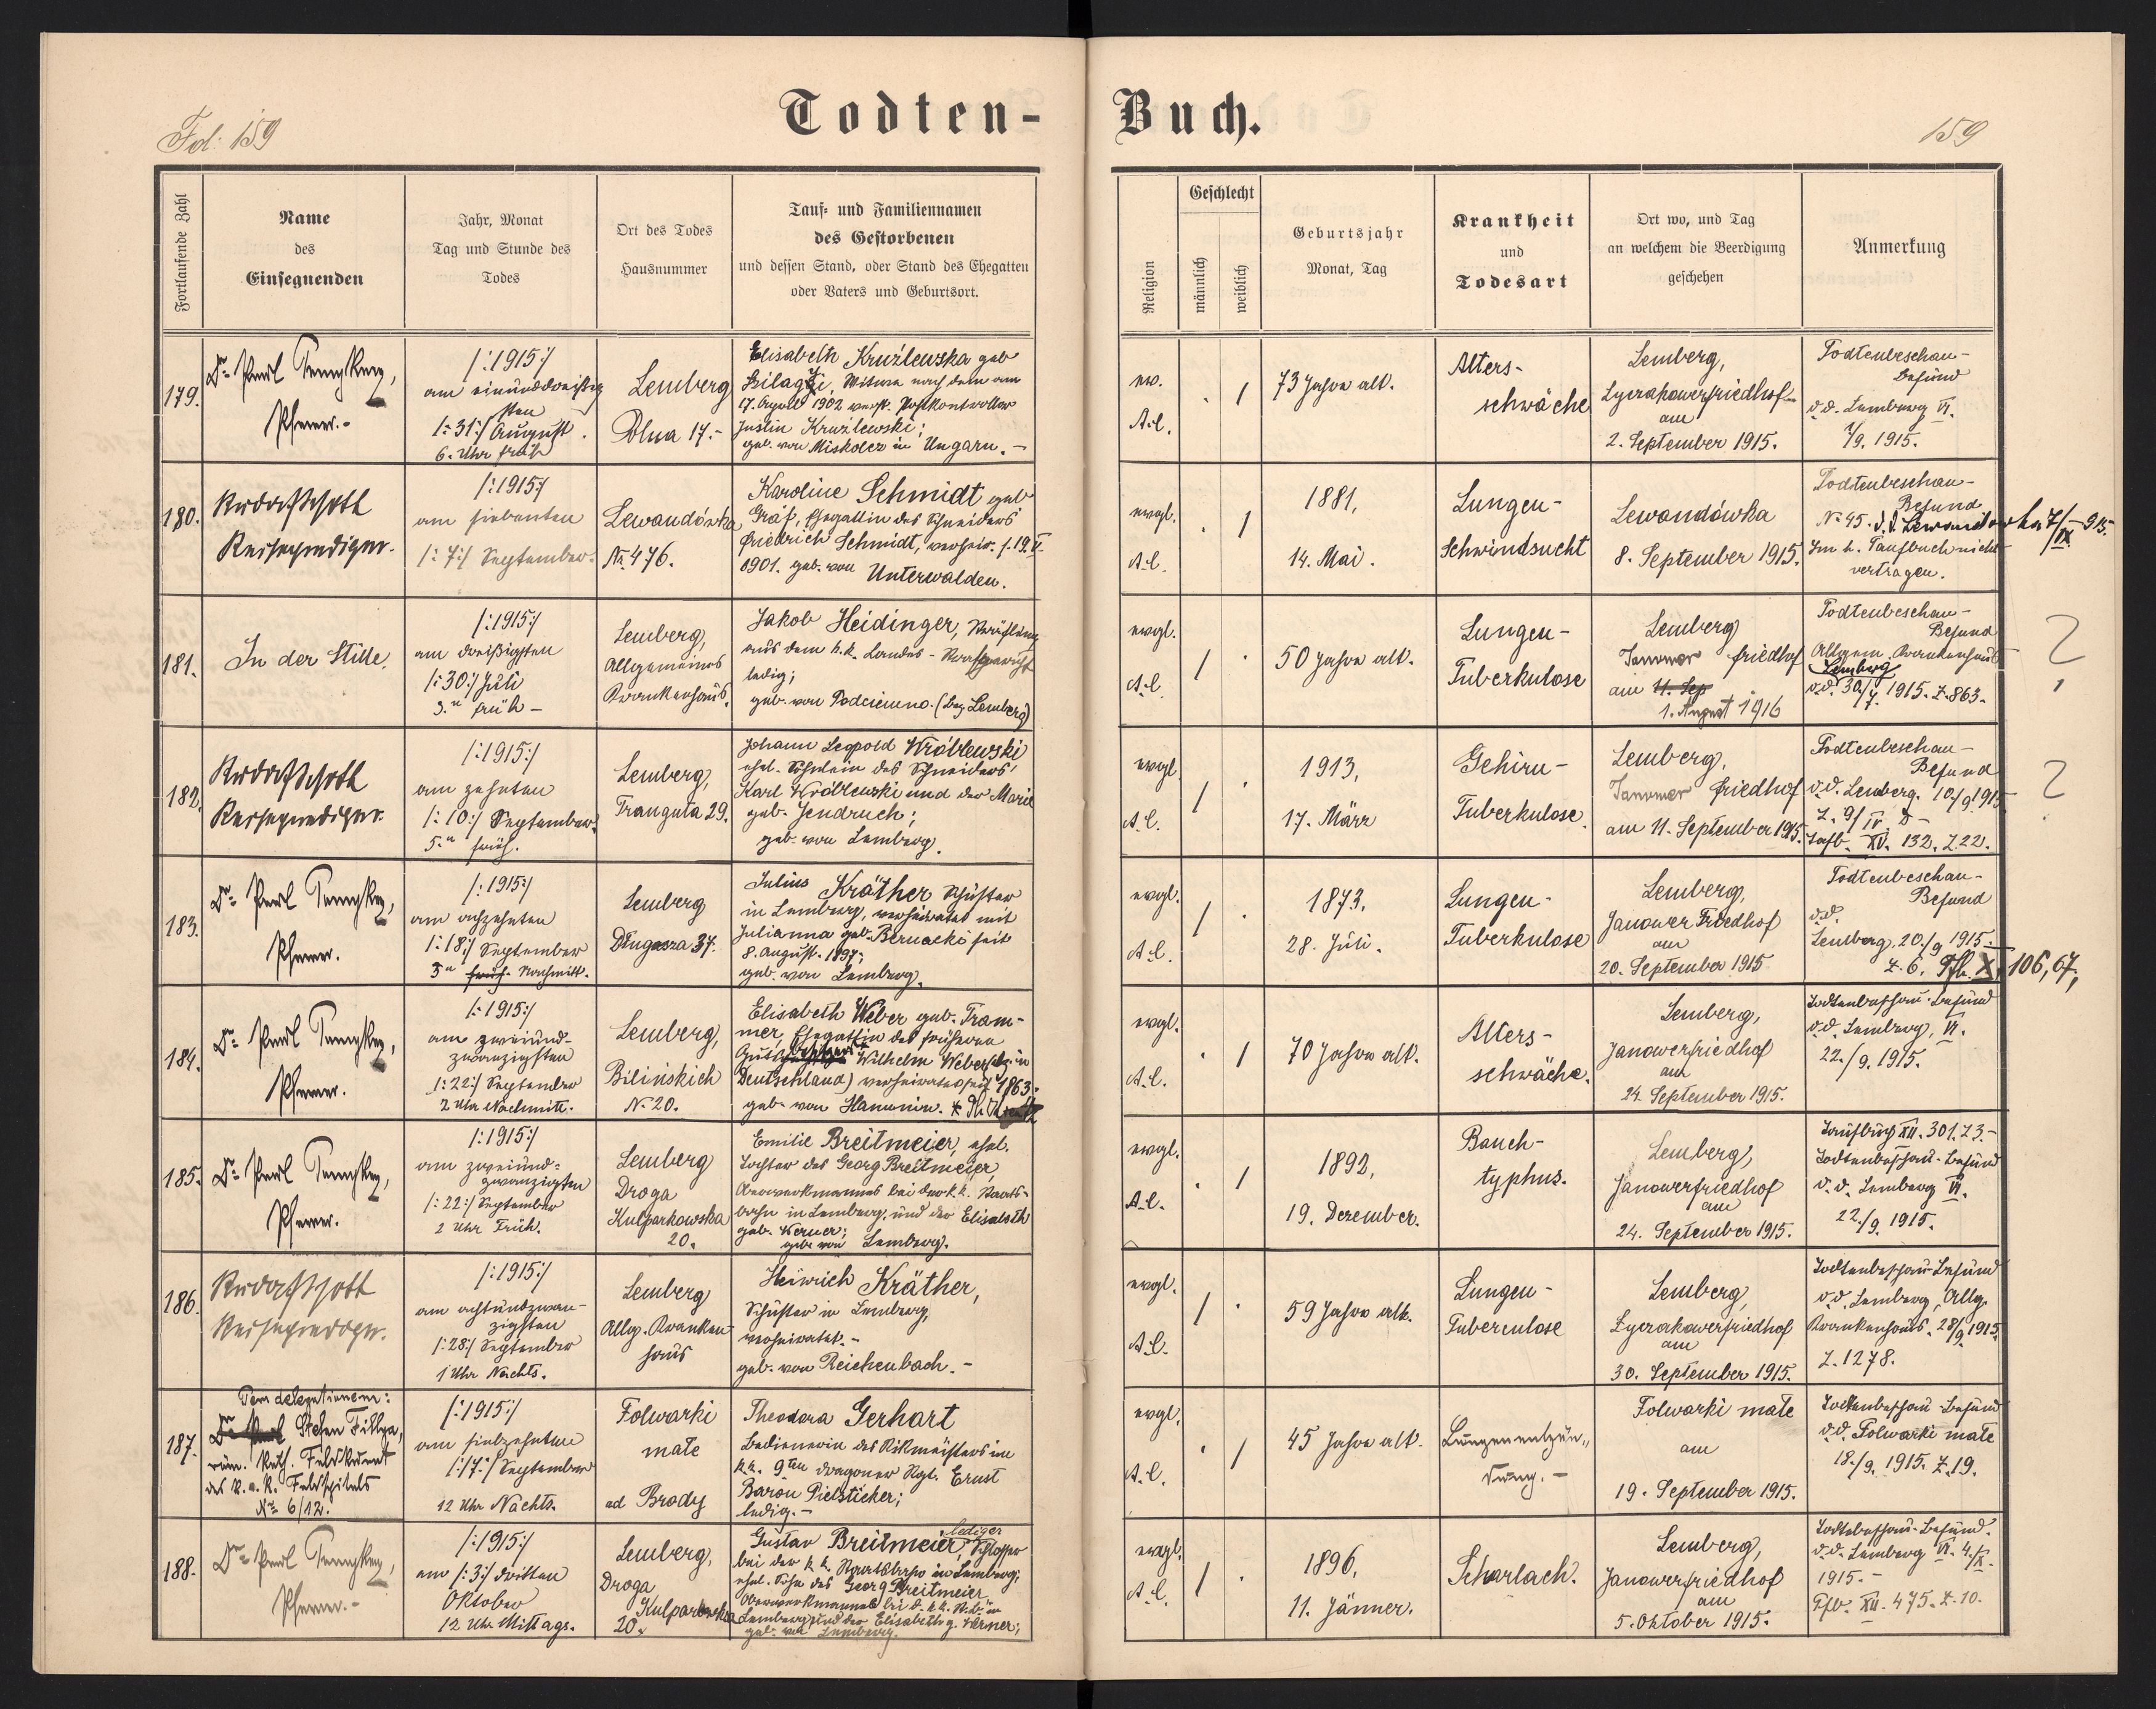 Fol: 159
Todten-Buch.
159
Fortlaufende Zahl
Name
des
Einsegnenden
Jahr, Monat
Tag und Stunde des
Todes
Ort des Todes
Hausnummer
Tauf- und Familiennamen
des Gestorbenen
und dessen Stand, oder Stand des Ehegatten
oder Vaters und Geburtsort.
Religion
Geschlecht
männlich
weiblich
Geburtsjahr
Monat, Tag
Krankheit
und
Todesart
Ort wo, und Tag
an welchem die Beerdigung
geschehen
Anmerkung
179.
Dr. Paul
Pfarrer.-
/:1915:/
am einunddreißig
sten
/:31:/ August.
6. Uhr früh
Lemberg
Polna 17.-
Elisabeth Kruźlewska geb
Szilagyi, Witwe nach dem am
17. April 1902 verst. Postkontrollor
Justin Kruźlewski;
geb. von Miskolcz in Ungarn. -
ev.
A.C.
/
73 Jahre alt.
Alters-
schwäche
Lemberg,
Lyczakowerfriedhof
am
2. September 1915.
Todtenbeschau-
Befund
d.d. Lemberg VI.
1/9. 1915.
180.
Reiseprediger.
/:1915:/
am siebenten
/:7:/ September.
Lewandówka
No. 476.
Karoline Schmidt geb
Gräf, Ehegattin des Schneiders
Friedrich Schmidt, verheir. s. 19. V.
1901. geb. von Unterwalden.
evgl.
A.C.
/
1881,
14. Mai.
Lungen-
Schwindsucht
Lewandówka
8. September 1915.
Todtenbeschau-
Befund
No 45. d.d. Lewandowka 7/IX 915.
Im h. Taufbuch nicht
vertragen.
181.
In der Stille.
/:1915:/
am dreißigsten
/:30:/ Juli
3. u früh -
Lemberg,
Allgemeines
Krankenhaus.
Jakob Heidinger, Häftling
aus dem k.k. Landes-
ledig;
geb. von (Bez. Lemberg)
evgl.
A.C.
/
50 Jahre alt.
Lungen-
Tuberkulose
Lemberg
Janower friedhof
am 11. Sep
1. August 1916
Todtenbeschau-
Befund
Allgem. Krankenhaus
Lemberg
d.d. 30/7. 1915. Z. 863.
?
182.
Reiseprediger.
/:1915:/
am zehnten
/:10:/ September.
5. u früh.
Lemberg,
Trauguta 29.
Johann Leopold Wróblewski
ehel. Söhnlein des Schneiders
Karl Wróblewski und der Marie
geb. Jendruch;
geb. von Lemberg.
evgl.
A.C.
/
1913,
17. März
Gehirn-
Tuberkulose.
Lemberg,
Janower friedhof
am 11. September 1915.
Todtenbeschau-
Befund
d.d. Lemberg. 10/9 1915
Z. 9/ IV.
Taufb. XV. 132. Z. 22.
?
183.
Dr. Paul
Pfarrer.
/:1915:/
am achzehnten
/:18:/ September
3 u früh. Nachmitt.
Lemberg
Długasza 37.
Julius Kräther Schuster
in Lemberg, verheiratet mit
Julianna geb. Bernacki seit
8. August. 1897;
geb. von Lemberg.
evgl.
A.C.
/
1873,
28. Juli.
Lungen-
Tuberkulose
Lemberg,
Janower Friedhof
am
20. September 1915
Todtenbeschau-
Befund
d.d.
Lemberg, 20./9 1915.
Z. 6. Tfb. X, 106, 67,
184.
Dr. Paul
Pfarrer.
/:1915:/
am zweiund-
zwanzigsten
/:22:/ September
2 Uhr Nachmitt.
Lemberg,
Bilińskich
No. 20.
Elisabeth Weber geb. Tram-
mer, Ehegattin des früheren
Wilhelm Weber
Deutschland) verheiratet seit 1863.
geb. von Hanunin.
evgl.
A.C.
/
70 Jahre alt.
Alters-
schwäche.
Lemberg,
Janowerfriedhof
am
24. September 1915.
Todtenbeschau-Befund
d.d. Lemberg, VI.
22./9. 1915.
185.
Dr. Paul
Pfarrer.
/:1915:/
am zweiund-
zwanzigsten
/:22:/ September
2 Uhr Früh.
Lemberg
Droga
Kulparkowska
20.
Emilie Breitmeier, ehel.
Tochter des Georg Breitmeier,
Oberwerkmannes bei der k.k. Staats-
bahn in Lemberg, und der Elisabeth
geb. Werner;
geb. von Lemberg.
evgl.
A.C.
/
1892,
19. Dezember.
Bauch-
typhus.
Lemberg,
Janowerfriedhof
am
24. September 1915.
Taufbuch XII. 301. Z 3.-
Todtenbeschau-Befund
d.d. Lemberg VI.
22./9. 1915.
186.
Reiseprediger.
/:1915:/
am achtundzwan-
zigsten
/:28:/ September
1 Uhr Nachts.
Lemberg
Allg. Kranken
haus
Heinrich Kräther,
Schuster in Lemberg,
verheiratet.-
geb. von Reichenbach.-
evgl.
A.C.
/
59 Jahre alt.
Lungen-
Tuberculose
Lemberg,
Lyczakowerfriedhof
am
30. September 1915.
Todtenbeschau-Befund
d.d. Lemberg, Allg.
Krankenhaus. 28/9 1915.
Z. 1278.
187.
Per delegationem:
Dr. Paul Stefan
röm. kath. Feldkurat
des k.u.k. Feldspitals
No. 6/12.
/:1915:/
am siebzehnten
/:17:/ September
12 Uhr Nachts.
Folwarki
małe
ad Brody
Theodora Gerhart
Bedienerin des Rittmeisters im
k.k. 9ten Dragoner Regt. Ernst
Baron Pielsticker;
ledig.-
evgl.
A.C.
/
45 Jahre alt.
Lungenentzün-
dung.-
Folwarki małe
am
19. September 1915.
Todtenbeschau-Befund
d.d. Folwarki małe
18./9. 1915. Z. 19.
188.
Dr. Paul
Pfarrer.-
/:1915:/
am /:3:/ dritten
Oktober
12 Uhr Mittags.
Lemberg,
Droga
Kulparkowska
20.
lediger
Gustav Breitmeier, Schlosser
bei der k.k. Staatsbahn in Lemberg;
ehel. Sohn des Georg Breitmeier
Oberwerkmannes bei d. k.k. St.b. in
Lemberg, und der Elisabeth g. Werner;
geb. von Lemberg.
evgl.
A.C.
/
1896,
11. Jänner.
Scharlach.
Lemberg,
Janowerfriedhof
am
5. Oktober 1915.
Todtenbeschau-Befund.
d.d. Lemberg VI. 4./X.
1915.-
Tfb. XII. 475. Z. 10.